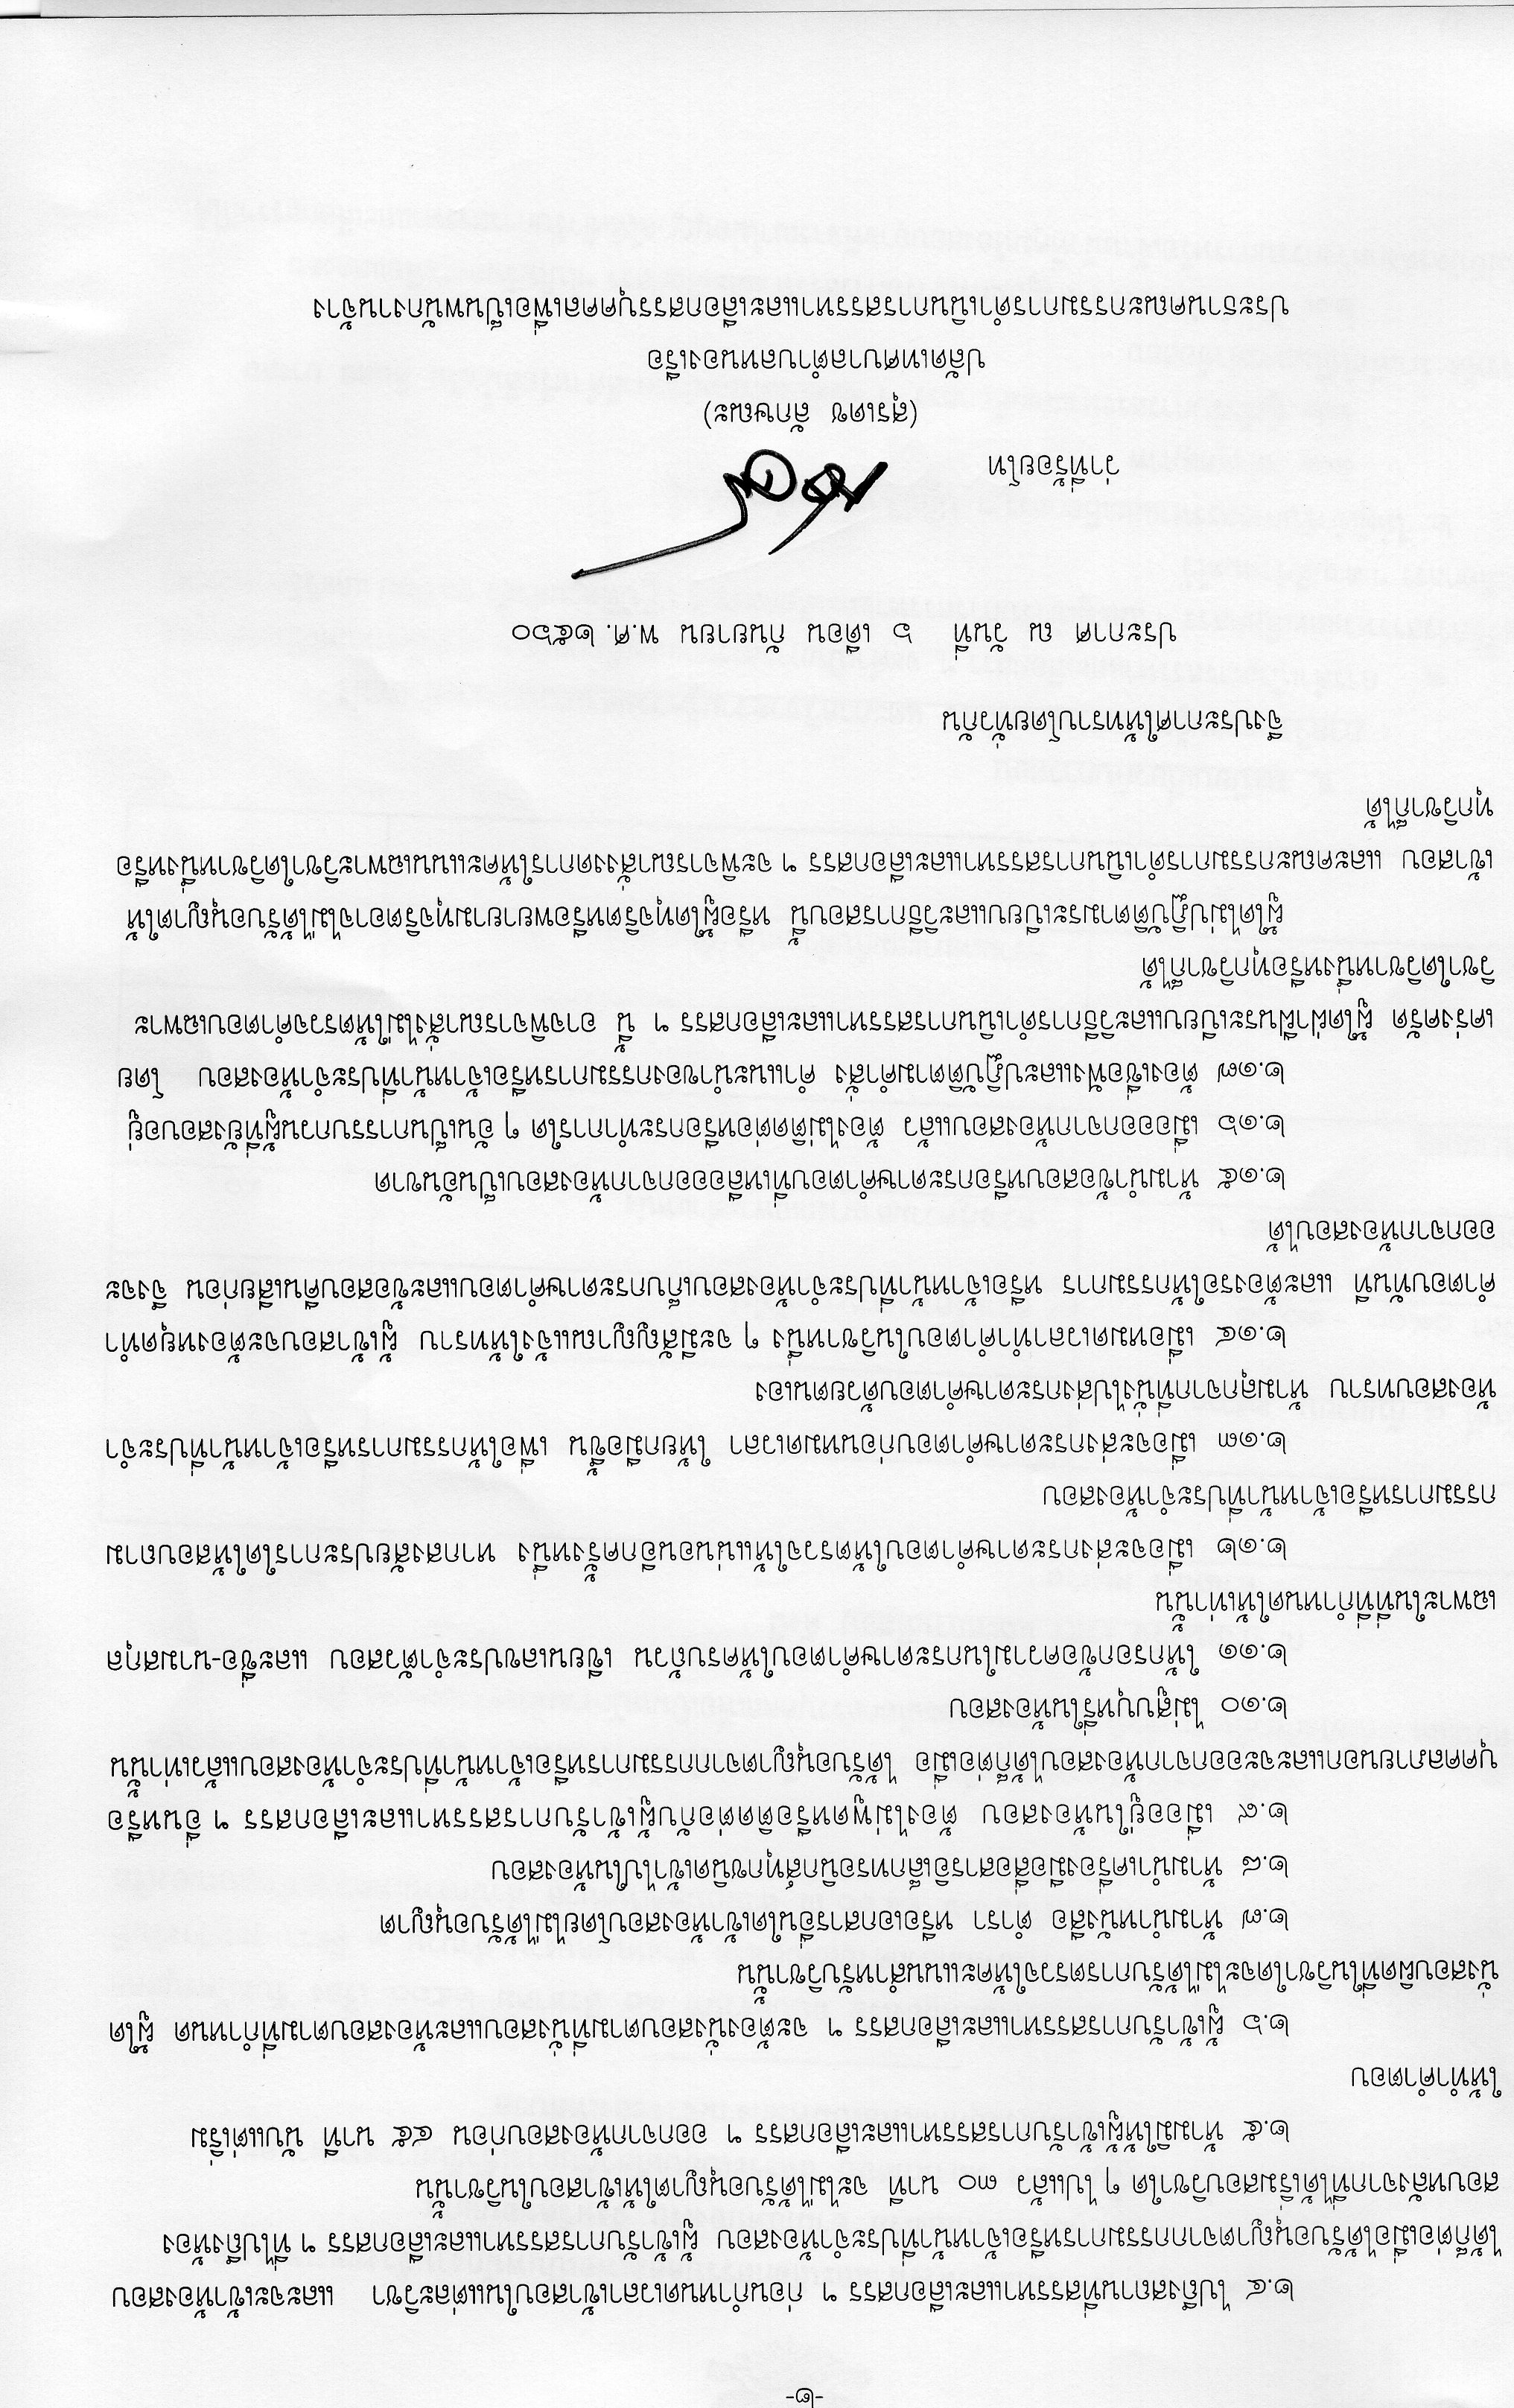 -๒-
๒.๔ ไปถึงสถานที่สรรหาและเลือกสรร ฯ ก่อนกำหนดเวลาเข้าสอบในแต่ละวิชา และจะเข้าห้องสอบ
ได้ก็ต่อเมื่อได้รับอนุญาตจากกรรมการหรือเจ้าหน้าที่ประจำห้องสอบ ผู้เข้ารับการสรรหาและเลือกสรร ฯ ที่ไปถึงห้อง
สอบหลังจากที่ได้เริ่มสอบวิชาใด ๆ ไปแล้ว ๓๐ นาที จะไม่ได้รับอนุญาตให้เข้าสอบในวิชานั้น
๒.๕ ห้ามมิให้ผู้เข้ารับการสรรหาและเลือกสรร ฯ ออกจากห้องสอบก่อน ๔๕ นาที นับแต่เริ่ม
ให้ทำคำตอบ
๒.๖ ผู้เข้ารับการสรรหาและเลือกสรร ฯ จะต้องนั่งสอบตามที่นั่งสอบและห้องสอบตามที่กำหนด ผู้ใด
นั่งสอบผิดที่ในวิชาใดจะไม่ได้รับการตรวจให้คะแนนสำหรับวิชานั้น
๒.๗ ห้ามนำหนังสือ ตำรา หรือเอกสารอื่นใดเข้าห้องสอบโดยไม่ได้รับอนุญาต
๒.๘ ห้ามนำเครื่องมือสื่อสารอิเล็กทรอนิกส์ทุกชนิดเข้าไปในห้องสอบ
๒.๙ เมื่ออยู่ในห้องสอบ ต้องไม่พูดหรือติดต่อกับผู้เข้ารับการสรรหาและเลือกสรร ฯ อื่นหรือ
บุคคลภายนอกและจะออกจากห้องสอบได้ก็ต่อเมื่อ ได้รับอนุญาตจากกรรมการหรือเจ้าหน้าที่ประจำห้องสอบแล้วเท่านั้น
๒.๑๐ ไม่สูบบุหรี่ในห้องสอบ
๒.๑๑ ให้กรอกข้อความในกระดาษคำตอบให้ครบถ้วน เขียนเลขประจำตัวสอบ และชื่อ-นามสกุล
เฉพาะในที่ที่กำหนดให้เท่านั้น
๒.๑๒ เมื่อจะส่งกระดาษคำตอบให้ตรวจให้แน่นอนอีกครั้งหนึ่ง หากสงสัยประการใดให้สอบถาม
กรรมการหรือเจ้าหน้าที่ประจำห้องสอบ
๒.๑๓ เมื่อจะส่งกระดาษคำตอบก่อนหมดเวลา ให้ยกมือขึ้น เพื่อให้กรรมการหรือเจ้าหน้าที่ประจำ
ห้องสอบทราบ ห้ามลุกจากที่นั่งไปส่งกระดาษคำตอบด้วยตนเอง
๒.๑๔ เมื่อหมดเวลาทำคำตอบในวิชาหนึ่ง ๆ จะมีสัญญาณแจ้งให้ทราบ ผู้เข้าสอบจะต้องหยุดทำ
คำตอบทันที และต้องรอให้กรรมการ หรือเจ้าหน้าที่ประจำห้องสอบเก็บกระดาษคำตอบและข้อสอบคืนเสียก่อน จึงจะ
ออกจากห้องสอบได้
๒.๑๕ ห้ามนำข้อสอบหรือกระดาษคำตอบที่เหลือออกจากห้องสอบเป็นอันขาด
๒.๑๖ เมื่อออกจากห้องสอบแล้ว ต้องไม่ติดต่อหรือกระทำการใด ๆ อันเป็นการรบกวนผู้ที่ยังสอบอยู่
๒.๑๗ ต้องเชื่อฟังและปฏิบัติตามคำสั่ง คำแนะนำของกรรมการหรือเจ้าหน้าที่ประจำห้องสอบ โดย
เคร่งครัด ผู้ใดฝ่าฝืนระเบียบและวิธีการดำเนินการสรรหาและเลือกสรร ฯ นี้ อาจพิจารณาสั่งไม่ให้ตรวจคำตอบเฉพาะ
วิชาใดวิชาหนึ่งหรือทุกวิชาก็ได้
ผู้ใดไม่ปฏิบัติตามระเบียบและวิธีการสอบนี้ หรือผู้ใดทุจริตหรือพยายามทุจริตอาจไม่ได้รับอนุญาตให้
เข้าสอบ และคณะกรรมการดำเนินการสรรหาและเลือกสรร ฯ จะพิจารณาสั่งงดการให้คะแนนเฉพาะวิชาใดวิชาหนึ่งหรือ
ทุกวิชาก็ได้
จึงประกาศให้ทราบโดยทั่วกัน
ประกาศ ณ วันที่ ๖ เดือน กันยายน พ.ศ. ๒๕๖๐
ว่าที่ร้อยโท
(สุรเดช ลักษณะ)
ปลัดเทศบาลตำบลหนองเรือ
ประธานคณะกรรมการดำเนินการสรรหาและเลือกสรรบุคคลเพื่อเป็นพนักงานจ้าง